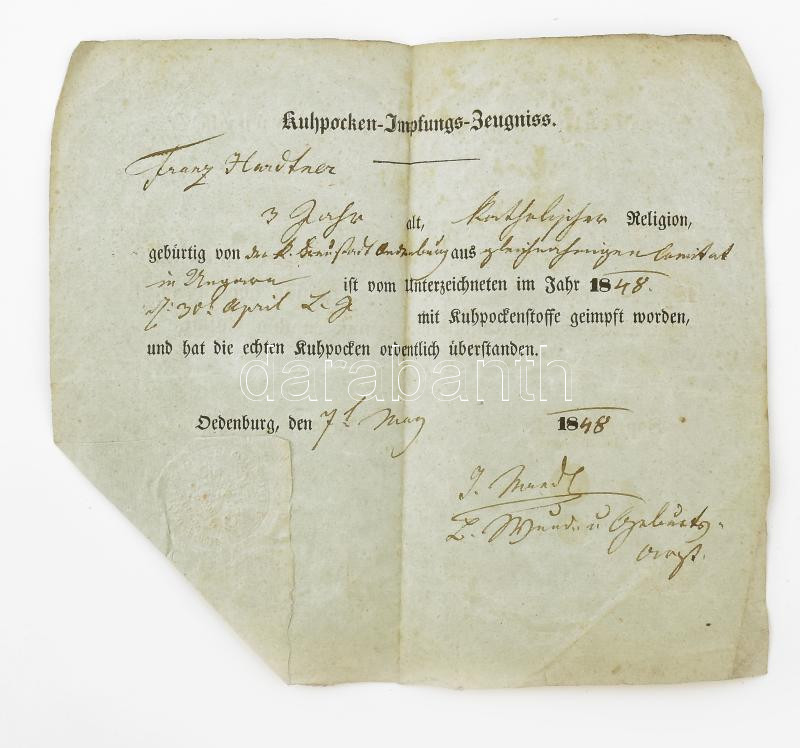 Kuhpocken-Impfungs-Zeugniss.
Franz Hardtner
3 Jahr alt, Katholischer Religion,
gebürtig von der k. Freustadt Oedenburg aus gleichnahmigen Comitat
in Ungarn ist vom Unterzeichneten im Jahr 1848.
30t April L. J. mit Kuhpockenstoffe geimpft worden,
und hat die echten Kuhpocken ordentlich überstanden.
darabanth
Oedenburg, den 7t May 1848
J. Mandl
Wund u Geburts-
arzt.